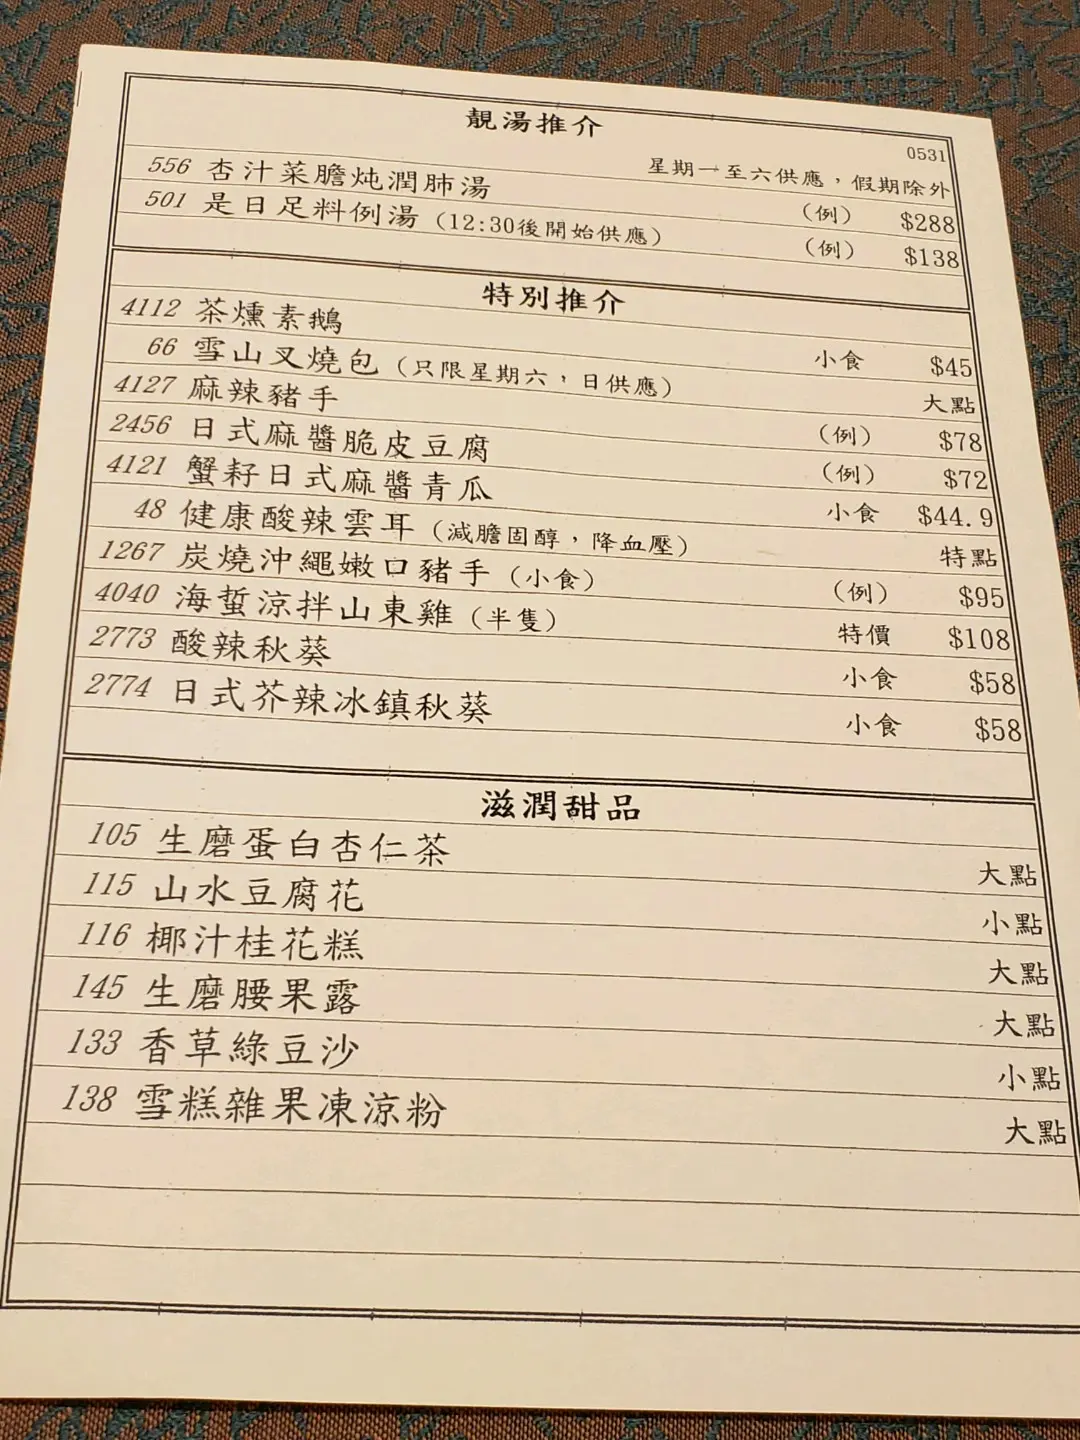 靚湯推介
0531
星期一至六供應，假期除外
556 杏汁菜膽炖潤肺湯 （例） $288
501 是日足料例湯（12:30後開始供應） （例） $138
特別推介
4112 茶燻素鵝 小食 $45
66 雪山叉燒包（只限星期六，日供應） 大點
4127 麻辣豬手 （例） $78
2456 日式麻醬脆皮豆腐 （例） $72
4121 蟹籽日式麻醬青瓜 小食 $44.9
48 健康酸辣雲耳（減膽固醇，降血壓） 特點
1267 炭燒沖繩嫩口豬手（小食） （例） $95
4040 海蜇涼拌山東雞（半隻） 特價 $108
2773 酸辣秋葵 小食 $58
2774 日式芥辣冰鎮秋葵 小食 $58
滋潤甜品
105 生磨蛋白杏仁茶 大點
115 山水豆腐花 小點
116 椰汁桂花糕 大點
145 生磨腰果露 大點
133 香草綠豆沙 小點
138 雪糕雜果凍涼粉 大點